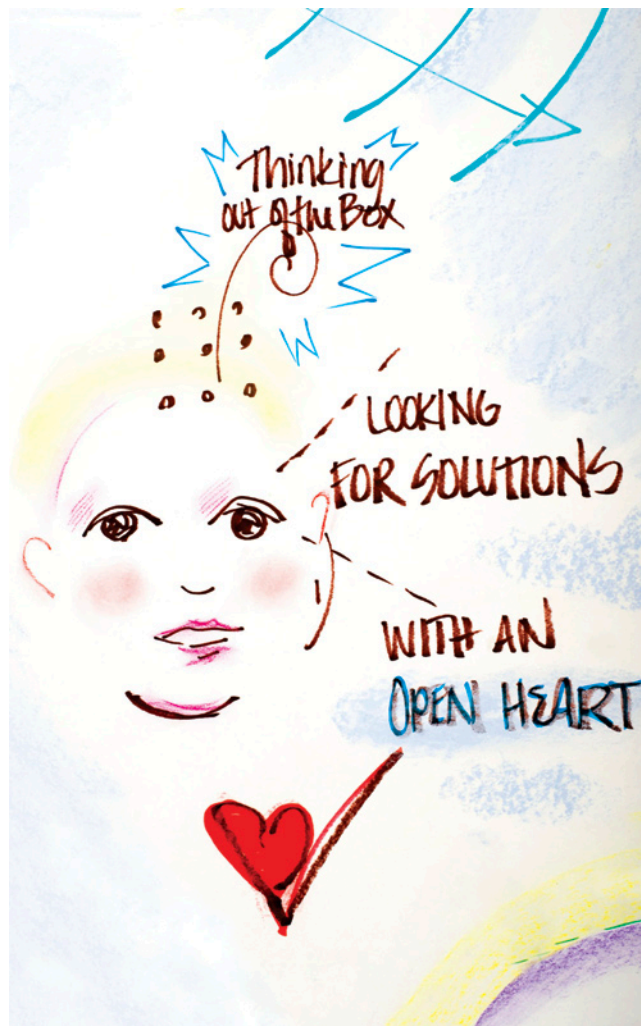 Thinking
out of the Box
LOOKING
FOR SOLUTIONS
WITH AN
OPEN HEART